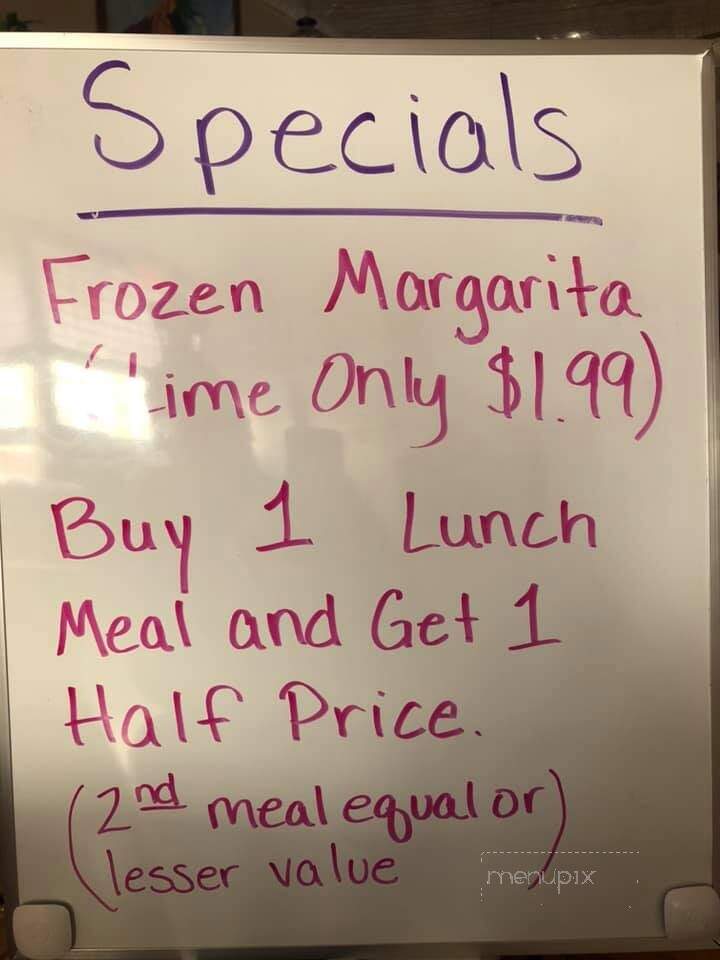 Specials
Frozen Margarita
(Lime Only $1.99)
Buy 1 Lunch
Meal and Get 1
Half Price.
(2nd meal equal or
lesser value)
menupix